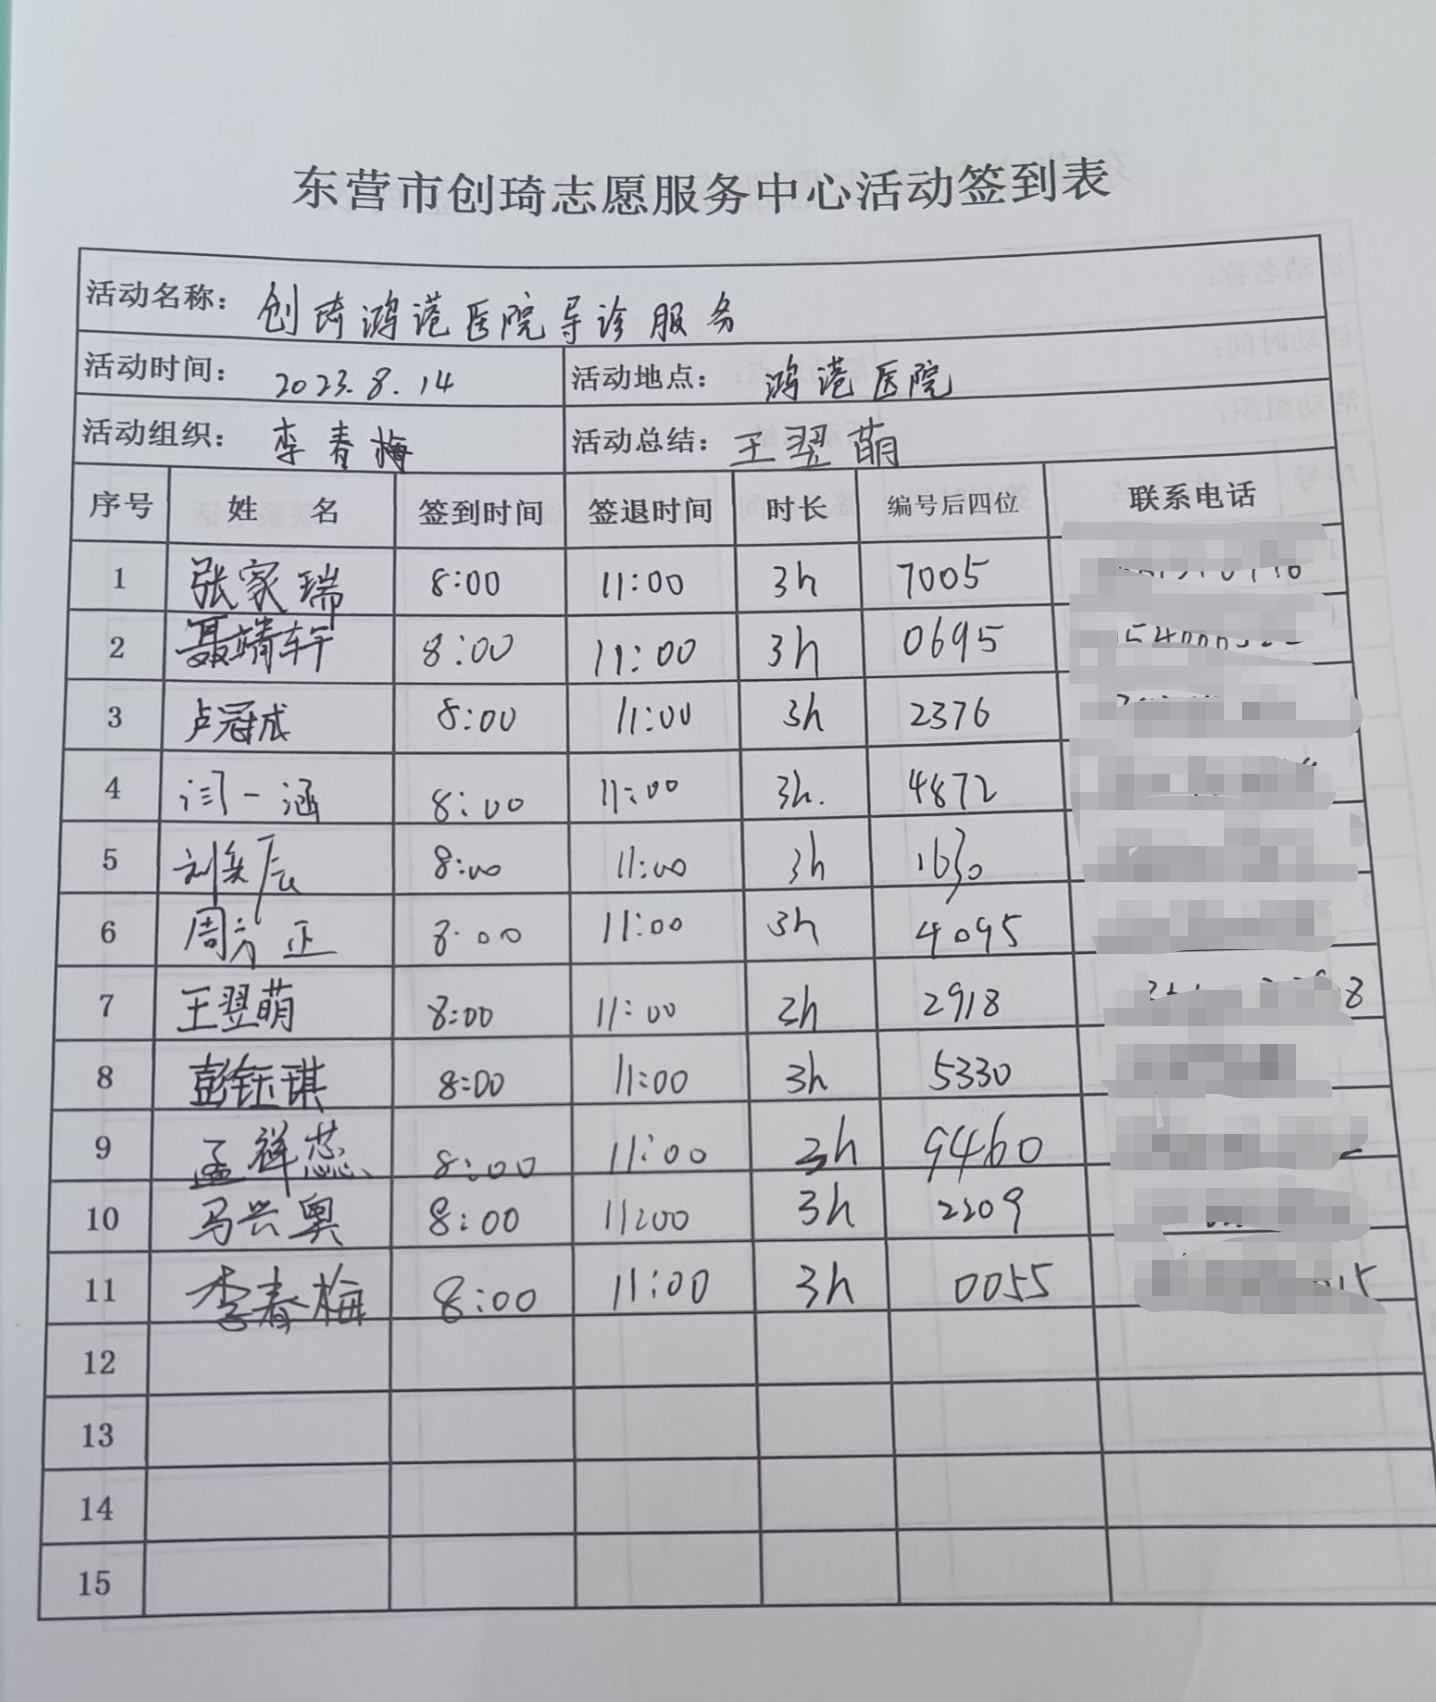 东营市创琦志愿服务中心活动签到表
活动名称：创琦鸿港医院导诊服务
活动时间：2023.8.14 活动地点：鸿港医院
活动组织：李春梅 活动总结：王翌萌
序号 姓名 签到时间 签退时间 时长 编号后四位 联系电话
1 张家瑞 8:00 11:00 3h 7005
2 聂靖轩 8:00 11:00 3h 0695
3 卢冠成 8:00 11:00 3h 2376
4 一涵 8:00 11:00 3h. 4872
5 刘奕辰 8:00 11:00 3h 1630
6 周方正 8:00 11:00 3h 4095
7 王翌萌 8:00 11:00 3h 2918
8 彭钰琪 8:00 11:00 3h 5330
9 孟祥蕊 8:00 11:00 3h 9460
10 马兴奥 8:00 11:00 3h 2209
11 李春梅 8:00 11:00 3h 0055
12
13
14
15